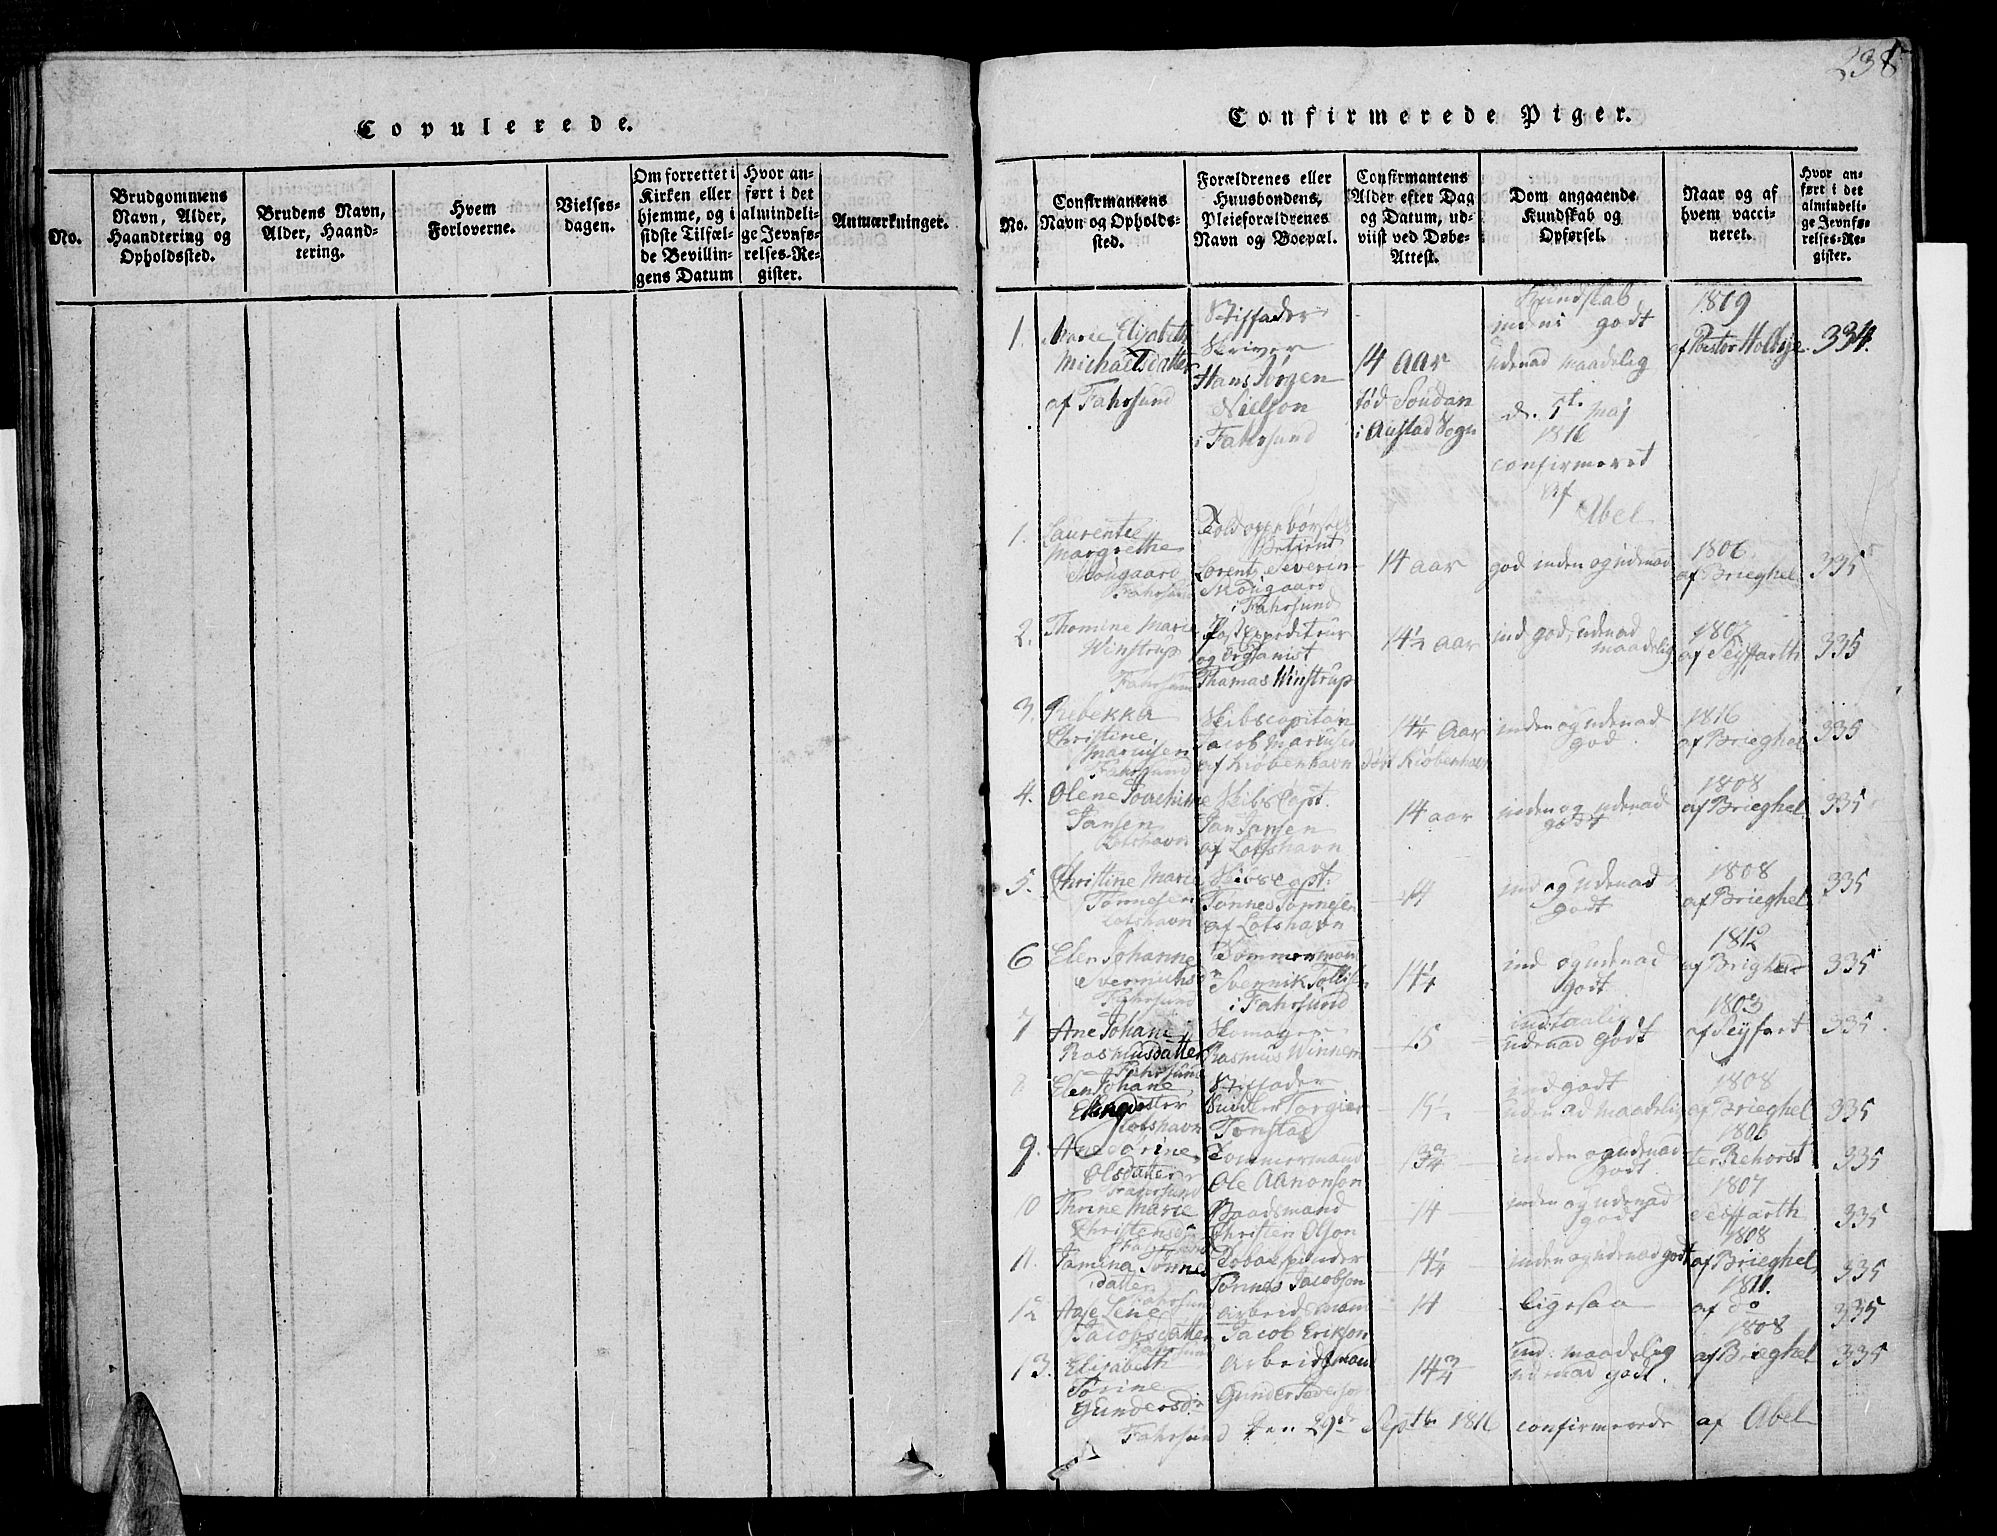 238
Copulerede.
No.
Brudgommens
Navn, Alder,
Haandtering og
Opholdssted.
Brudens Navn,
Alder, Haand-
tering.
Hvem
Forloverne.
Vielses-
dagen.
Om forrettet i
Kirken eller
hjemme, og i
sidste Tilfæl-
de Bevillin-
gens Datum
Hvor an-
ført i det
almindeli-
ge Jevnfø-
relses-Re-
gister.
Anmærkninger.
Confirmerede Piger.
No.
Confirmantens
Navn og Opholds-
sted.
Forældrenes eller
Huusbondens,
Pleieforældrenes
Navn og Boepæl.
Confirmantens
Alder efter Dag
og Datum, ud-
viist ved Døbe-
Attest.
Dom angaaende
Kundskab og
Opførsel.
Naar og af
hvem vacci-
neret.
Hvor an-
ført i det
almindeli-
ge Jevnfø-
relses-Re-
gister.
1.
Marie Elisabeth
Michaelsdatter
af Fahrsund
Stiffader
Skriver
Hans Jørgen
Nielson
i Fahrsund
14 Aar
fød Soudan
i Austad Sogn
Kundskab
godt
udenad maadelig
d. 5te Maj
1816
confirmeret
af
Abel
1809
af Pastor
334.
1.
Laurentze
Margrethe
Mougaard
Fahrsund
Betient
Lorentz Severin
Mougaard
i Fahrsund
14 aar
god inden og udenad
1806
af Brieghel
335
2.
Thomine Marie
Winstrup
Fahrsund
Postexpediteur
og Organist
Thamas Winstrup
14½ aar
ind god, udenad
maadelig
af Seyffarth
335
3.
Rebekka
Christine
Mariusen
Fahrsund
Skibscapitain
Jacob Mariusen
af Kiøbenhavn
14¼ Aar
født Kiøbenhavn
inden og udenad
god
1816
af Brieghel
335
4.
Olene Joachime
Jansen
Lotshavn
Skibs Capt.
Jan Jansen
af Lotshavn
14 aar
inden og udenad
godt
1808
af Brieghel
335
5.
Christine Marie
Tønnesen
Lotshavn
Skibscapt:
Tønnes Tønnesen
af Lotshavn
14
ind og udenad
godt
1808
af Brieghel
335
6
Elen Johanne
Fahrsund
Tømmermand
i Fahrsund
14¼
ind og udenad
godt
1812
af Brighel
335
7
Ane Johane
Rasmusdatter
Fahrsund
Skomager
Rasmus Winnem
15
udenad godt
1803
af Seyfart
335
8
Elen Johane
Lotshavn
Stiffader
Torgier
Tonstad
15½
ind godt
udenad maadelig
1808
af Brieghel
335
9.
Ane Sørine
Olsdatter
Fahrsund
Tømmermand
Ole Aanonson
13¾
inden og udenad
godt
1806
Rehorst
335
10
Thrine Marie
Christensd.
Baadsmand
Christen Olson
14
inden og udenad
godt
1807
Seiffarth
335
11.
Jamina Tønnes
datter
Fahrsund
Tobakspinder
Tønnes Jacobson
14¼
inden og udenad godt
1808
af Brieghel
335
12
Ane Lene
Jacobsdatter
Fahrsund
arbeidsman
Jacob Erikson
14
ligesaa
1811.
af do
335
13.
Elisabeth
Tørine
Gundersd.
Fahrsund
Arbeidsman
Gunder Pederson
14¾
ind: maadelig
udenad godt.
1808
af Brieghel
335
den 29de Septbr 1816 confirmerede af Abel